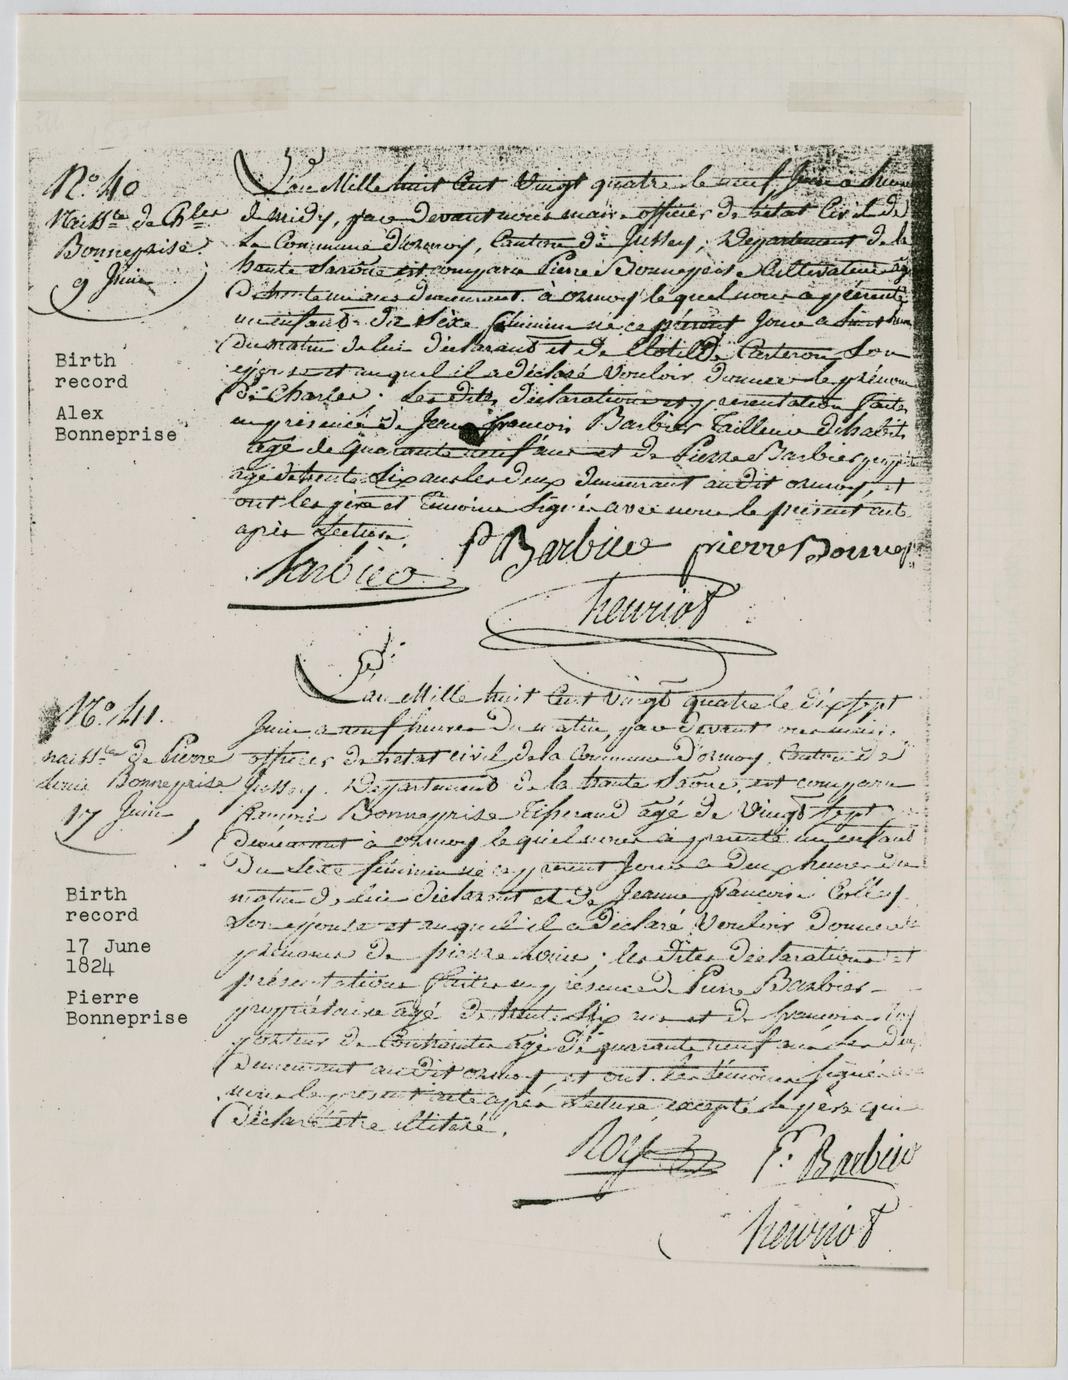 N.o 40
Naiss.ce de Ch.les
Bonneprise
9 Juin
L'an Mille huit Cent Vingt quatre le neuf Juin a
de midy, par devant nous maire officier de l'etat Civil de
la Commune d'ormoy, Canton de Jussey, Departement de la
haute Saône est comparu Pierre Bonneprise Cultivateur
demeurant à ormoy lequel nous a présenté
un enfant du sexe féminin né ce présent Jour a
du matin de lui déclarant et de Clotilde Carteron Son
épouse et auquel il a déclaré Vouloir donner le prénom
de Charles. Les dites déclaration et présentation faites
en présence de Jean francois Barbier Tailleur d'habits
agé de quarante neuf ans et de Pierre Barbier
agé de trente Six ans les deux demeurant au dit ormoy, et
ont les père et témoins Signé avec nous le présent acte
après Lecture.
P Barbier pierre Bonnep
Barbier
henriot
Birth
record
Alex
Bonneprise
N.o 41.
naiss.ce de Pierre
Louis Bonneprise
17 Juin
L'an Mille huit Cent Vingt quatre le dix sept
Juin a neuf heures du matin, par devant nous maire
officier de l'etat civil de la Commune d'ormoy, Canton de
Jussey. Departement de la haute Saône, est comparu
Bonneprise Tisserand agé de Vingt Sept
demeurant à ormoy lequel nous à présenté un enfant
du Sexe féminin né ce présent Jour a deux heures du
matin de lui déclarant et de Jeanne francoise
Son épouse et auquel il a déclaré Vouloir donner
prénoms de pierre Louis; les dites déclaration et
présentation faites en présence de Pierre Barbier
propriétaire agé de trente Six ans et de francois
de Contraintes agé de quarante neuf ans Les deux
demeurant au dit ormoy, et ont les témoins Signé
nous le présent acte après Lecture excepté le père qui
déclaré être illitéré.
Roy P. Barbier
henriot
Birth
record
17 June
1824
Pierre
Bonneprise